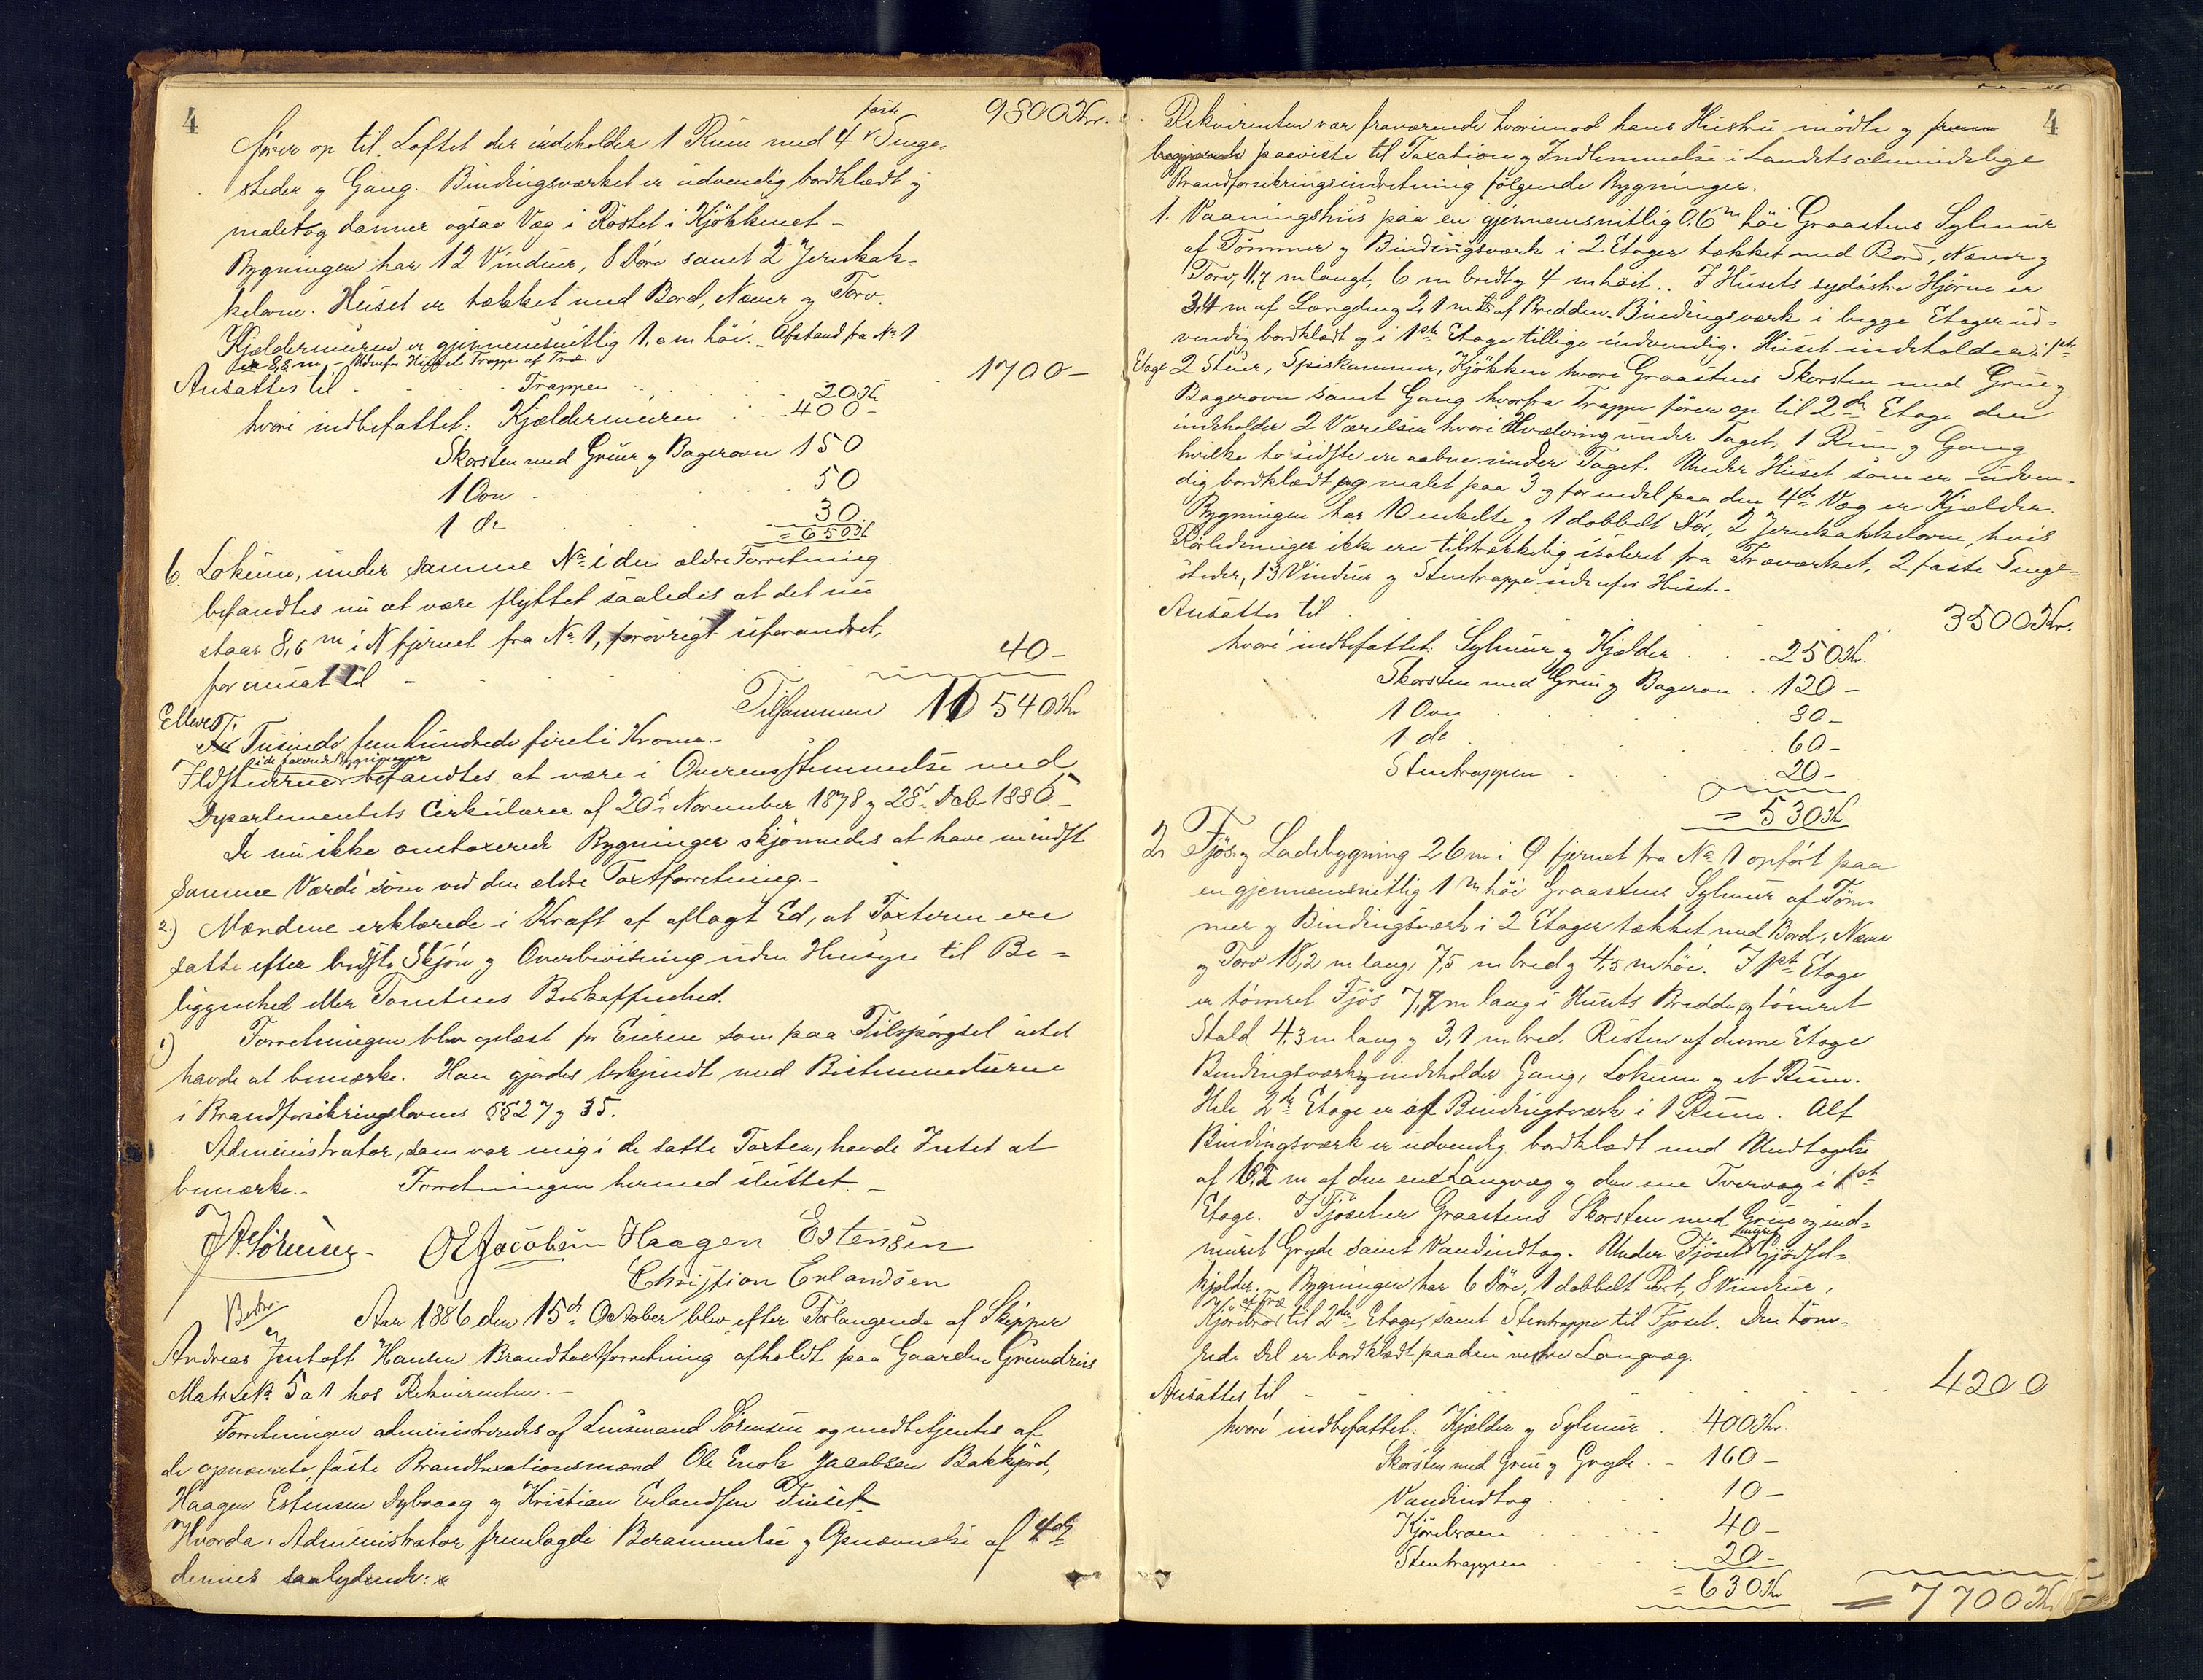 4
faste 9800 Kr.
fører op til Loftet der indeholder 1 Rum med 4 Senge-
steder og Gang. Bindingsværket er udvendig bordklædt og
malet og danner ogsaa Væg i Röstet i Kjökkenet -
Bygningen har 12 Vinduer, 8 Döre samt 2 Jernkak-
kelovne. Huset er tækket med Bord, Næver og Torv.
Kjældermuren er gjennemsnitlig 1,0 m höi. - Afstand fra No 1
er 8,8 m. - Udenfor Huset Trappe af Træ
Ansættes til . . . 1700 -
Trappen . . 20 Kr
hvori indbefattet: Kjældermuren . . 400 -
Skorsten med Gruer og Bagerovn 150
1 Ovn . . 50
1 do . . 30
= 650 Kr
6. Lokum, under samme No i den ældre Forretning
befandtes nu at være flyttet saaledes at det nu
staar 8,6 m i N fjernet fra No 1, forövrigt uforandret,
for ansat til - 40 -
Tilsammen 11 540 Kr
Elleve
Tusinde fem hundrede fireti Kroner. -
i de taxerede Bygninger
Ildstederne befandtes at være i Overensstemmelse med
Departementets Cirkulærer af 20de November 1878 og 28de Debr 1880 -
De nu ikke omtaxerede Bygninger skjönnedes at have mindst
samme Værdi som ved den ældre Taxtforretning. -
2.) Mændene erklærede i Kraft af aflagt Ed, at Taxterne ere
satte efter bedste Skjön og Overbevisning uden Hensyn til Be-
liggenhed eller Tomtens Beskaffenhed.
1) Forretningen blev oplæst for Eieren som paa Tilspörgsel intet
havde at bemærke. Han gjordes bekjendt med Bestemmelserne
i Brandforsikringslovens §§ 27 og 35.
Administrator, som var enig i de satte Taxter, havde Intet at
bemærke. - Forretningen hermed sluttet. -
Sörensen - O E Jacobsen Haagen Estensen
Christian Erlandsen
Aar 1886 den 15de October blev efter Forlangende af Skipper
Andreas Jentoft Hansen Brandtaxtforretning afholdt paa Gaarden Grundvis
Matr. Lo 5 a 1 hos Rekvirenten. -
Forretningen administreredes af Lensmand Sörensen og medbetjentes af
de opnævnte, faste Brandtaxationsmænd Ole Enok Jacobsen Bakkejord,
Haagen Estensen Dybvaag og Kristian Erlandsen
Hvorda: Administrator fremlagde Berammelse og Opnævnelse af 4de
dennes saalydende:
4
Rekvirenten var fraværende hvorimod hans Hustru mödte og
paaviste til Taxation og Indlemmelse i Landets almindelige
Brandforsikringsindretning følgende Bygninger.
1. Vaaningshus paa en gjennemsnitlig 0,6 m höi Graastens Sylmur
af Tömmer og Bindingsværk i 2 Etager tækket med Bord, Næver og
Torv, 11,7 m langt, 6 m bredt og 4 m höit. . I Husets sydöstre Hjörne er
3,4 m af Længden og 2,1 m af Bredden Bindingsværk i begge Etager ud-
vendig bordklædt og i 1ste Etage tillige indvendig. Huset indeholder: i 1ste
Etage 2 Stuer, Spiskammer, Kjökken hvori Graastens Skorsten med Grue og
Bagerovn samt Gang hvorfra Trappe förer op til 2den Etage der
indeholder 2 Værelser hvori Hvælving under Taget, 1 Rum og Gang
hvilke to sidste ere aabne under Taget. Under Huset som er udven-
dig bordklædt og malet paa 3 og for endel paa den 4de Væg er Kjælder.
Bygningen har 10 enkelte og 1 dobbelt Dör, 2 Jernkakkelovne, hvis
Rörledninger ikke ere tilstrækkelig isoleret fra Træværket, 2 faste Senge-
steder, 13 Vinduer og Stentrappe udenfor Huset. -
Ansættes til . . . 3500 Kr.
hvori indbefattet: Sylmur og Kjælder . . 250 Kr.
Skorsten med Grue og Bagerovn . 120 -
1 Ovn . . 80 -
1 do . . 60 -
Stentrappen . . 20 -
= 530 Kr
2. Fjös og Ladebygning 26 m i Ø fjernet fra No 1 opfört paa
en gjennemsnitlig 1 m höi Graastens Sylmur af Töm-
mer og Bindingsværk i 2 Etager tækket med Bord, Næver
og Torv 18,2 m lang, 7,5 m bred og 4,5 m höi. I 1ste Etage
er tömret Fjös 7,7 m lang i Husets Bredde, og tömret
Stald 4,3 m lang og 3,1 m bred. Resten af denne Etage
Bindingsværk og indeholder Gang, Lokum og et Rum.
Hele 2den Etage er af Bindingsværk i 1 Rum. Alt
Bindingsværk er udvendig bordklædt med Undtagelse
af 10,2 m af den ene Langvæg og den ene Tvervæg i 1ste
Etage. I Fjöset er Graastens Skorsten med Grue og ind-
muret Gryde samt Vandindtag. Under Fjöset muret Gjödsel-
kjelder. Bygningen har 6 Döre, 1 dobbelt Port, 8 Vinduer,
Kjörebro af Træ til 2den Etage, samt Stentrappe til Fjöset. Den töm-
rede Del er bordklædt paa den vestre Langvæg.
Ansættes til - . . . 4200
hvori indbefattet: Kjælder og Sylmur . . 400 Kr.
Skorsten med Grue og Gryde . - 160 -
Vandindtag . . 10 -
Kjörebroen . . 40 -
Stentrappen . . 20 -
= 630 Kr
= 7700 Kr